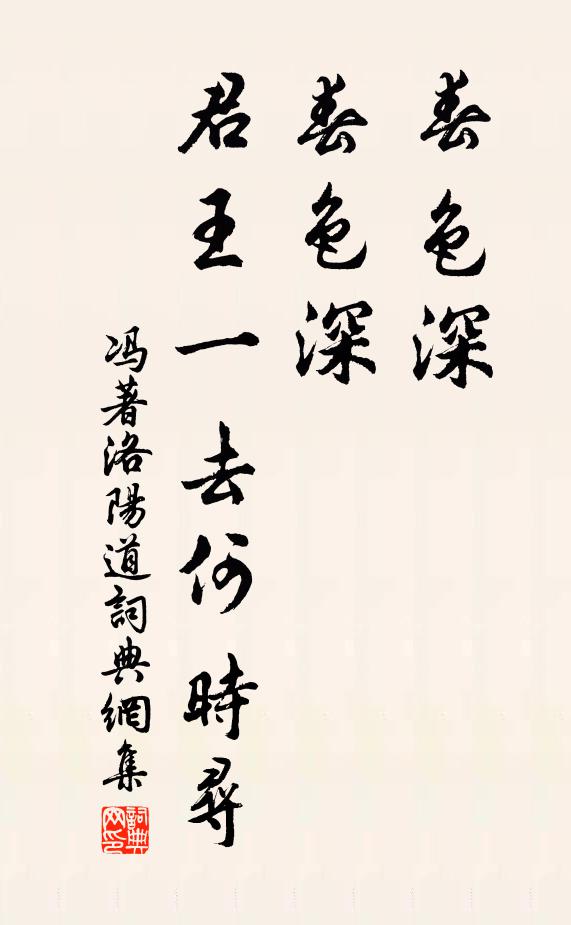 春色深
春色深
君王一去何時尋
冯著洛陽道詞典網集
詞典網印